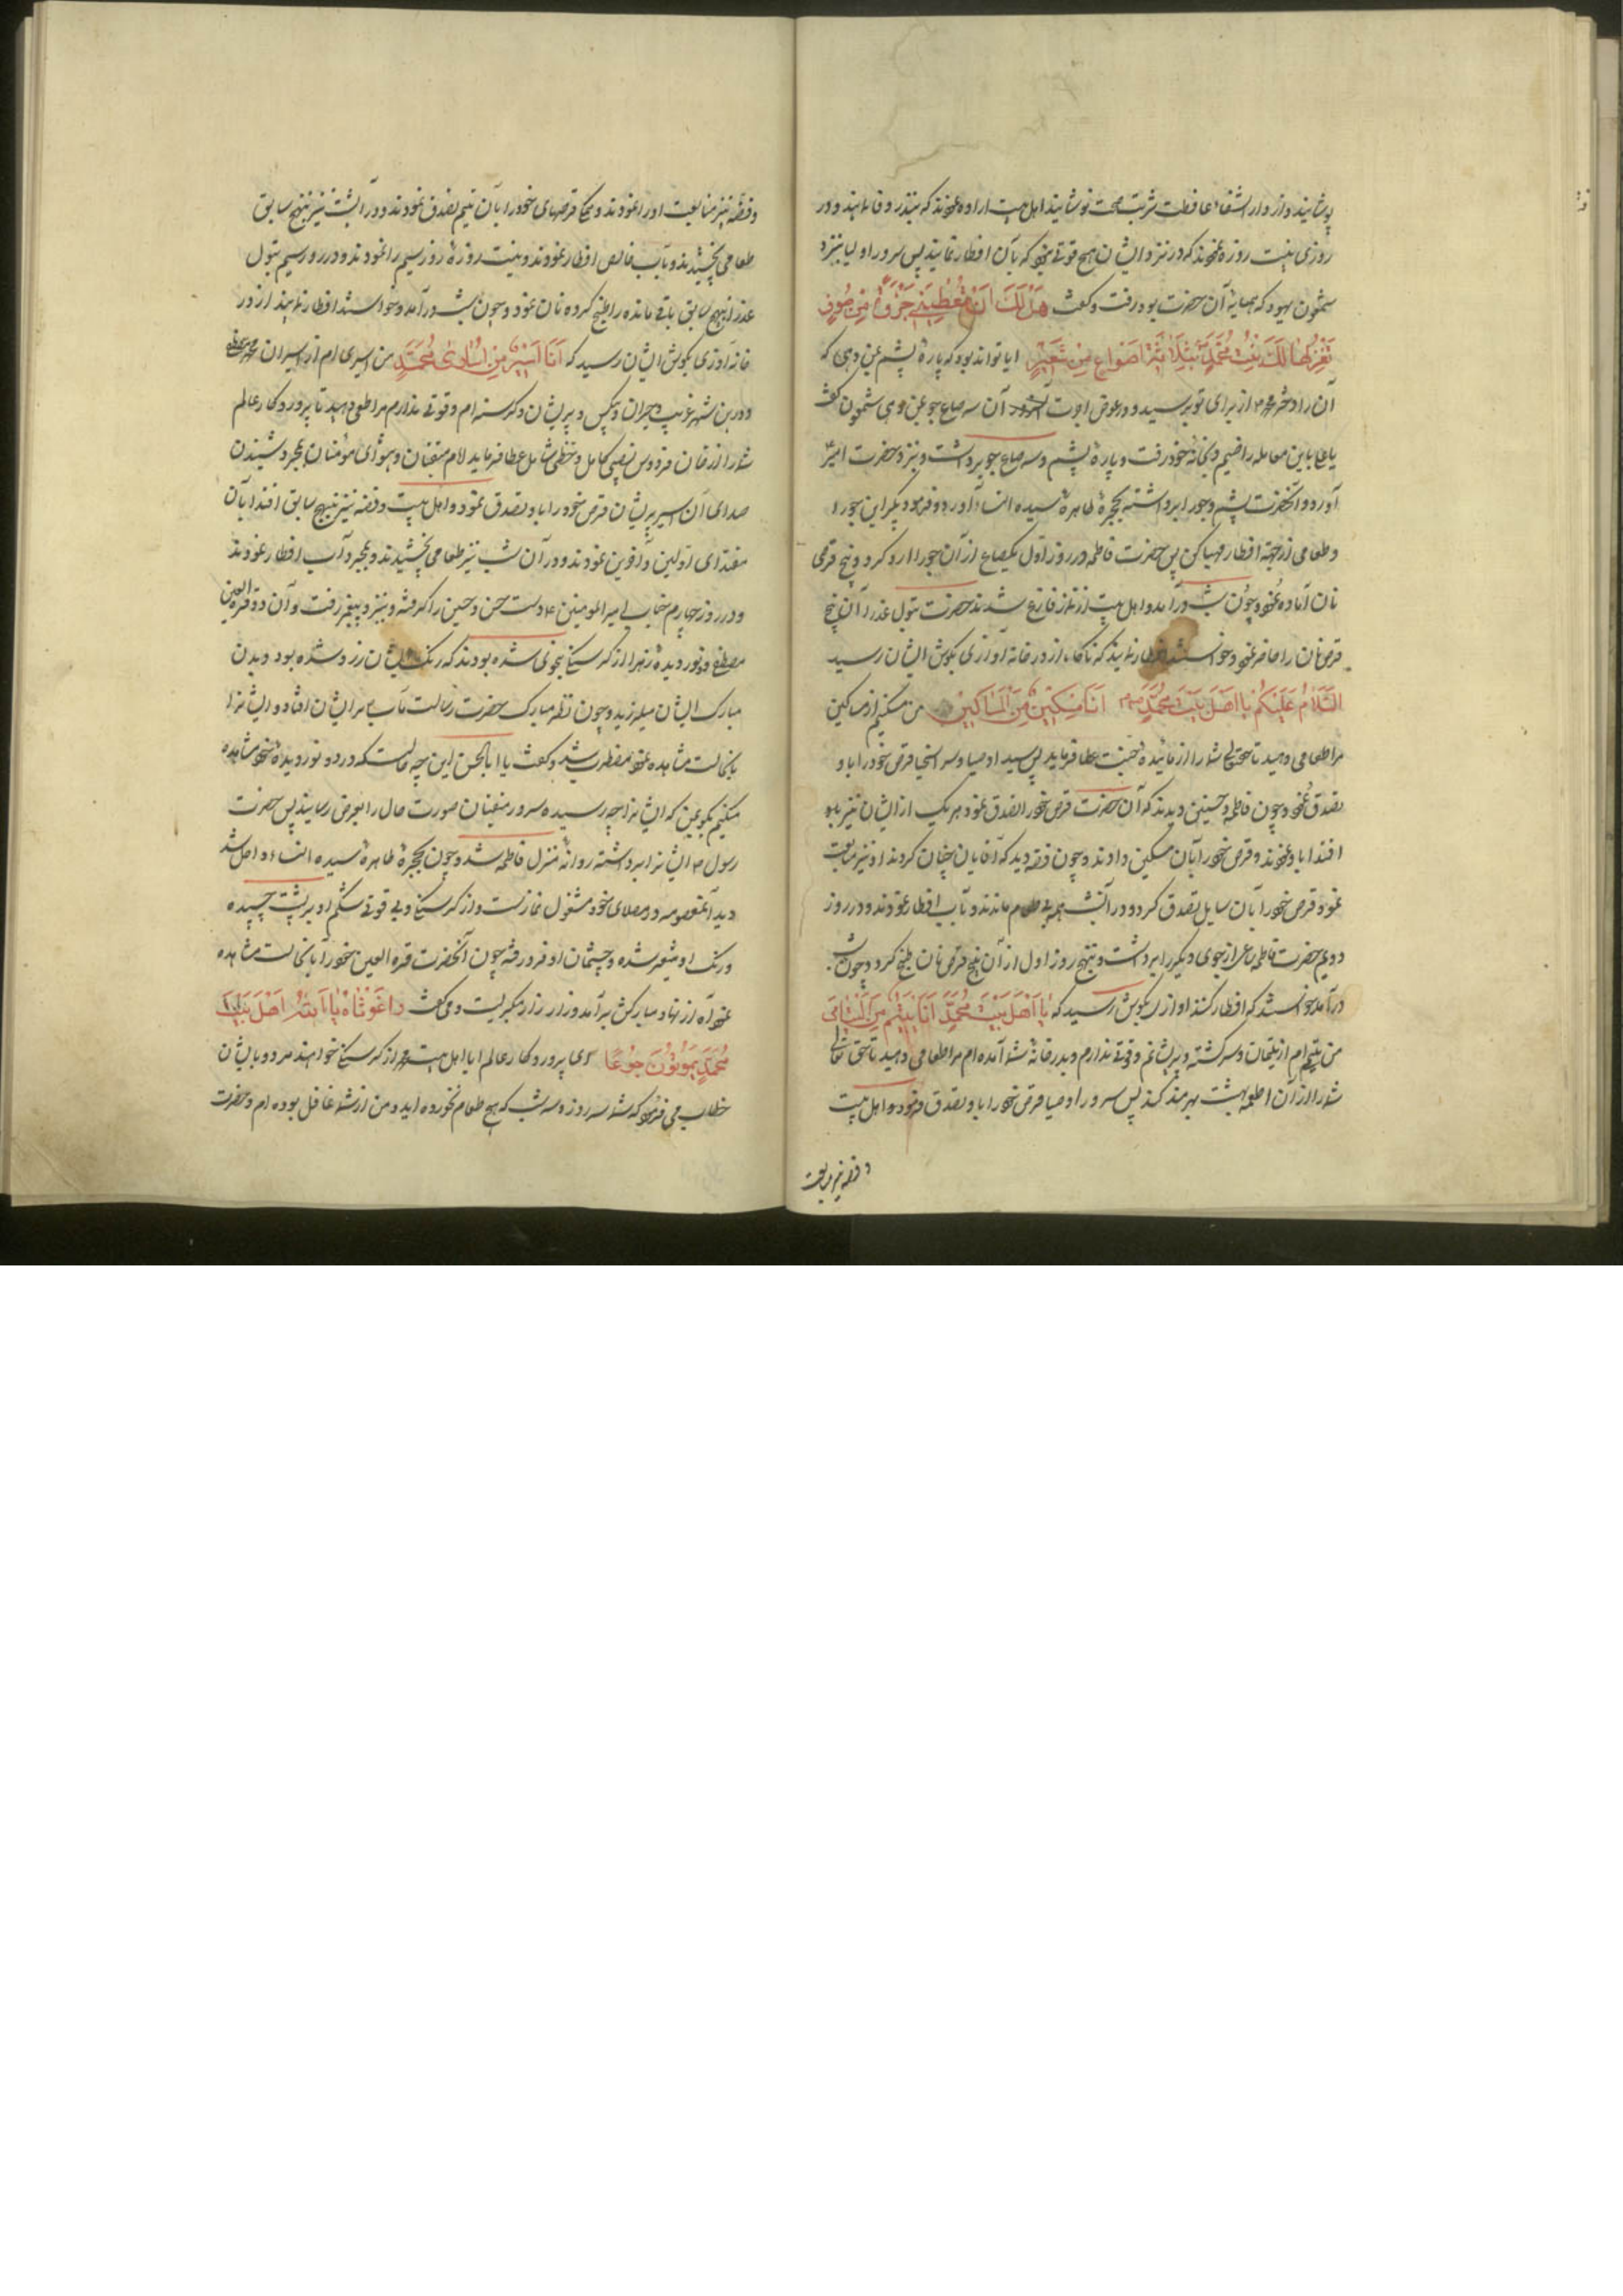 پوشانیند و از دار الشفاء عافیت شربت صحت نوشانیند اهل بیت اراده نمودند که بنذر وفا نمایند و در
روزی بنیت روزه نمودند که در نزد ایشان هیچ قوتی نبود که بآن افطار نمایند پس سرور اولیا بنزد
شمعون یهود که همسایهٔ آن حضرت بود رفت و گفت هَلْ لَكَ اَنْ تُعْطِیَنی جَزَّةً مِنْ صُوفٍ
تَغْزِلُها لَكَ بِنْتُ مُحَمَّدٍ بِثَلاثَةِ اَصْوَاعٍ مِنْ شَعیرٍ ایا تواند بود که پارهٔ پشم بمن دهی که
آن را دختر محمد از برای تو بریسد و در عوض اجرت آن سه صاع جو بمن دهی شمعون گفت
یا علی باین معامله راضیم و بخانهٔ خود رفت و پارهٔ پشم و سه صاع جو برداشت و بنزد حضرت امیر
آورد و آنحضرت پشم و جو را برداشته بحجرهٔ طاهرهٔ سیده النساء آورد و فرمود بگیر این جو را
و طعامی از جهة افطار مهیا کن پس حضرت فاطمه در روز اول یکصاع از آن جو را آرد کرد و پنج قرص
نان آماده نمود و چون شب درآمد و اهل بیت از نماز فارغ شدند حضرت بتول عذرا آن پنج
قرص نان را حاضر نمود و خواستند افطار نمایند که ناگاه از در خانه آوازی بگوش ایشان رسید
اَلسَّلامُ عَلَیْکُمْ یا اَهْلَ بَیْتِ مُحَمَّدٍ اَنَا مِسْکینٌ مِنَ الْمَساکینِ من مسکینم از مساکین
مرا طعامی دهید تا حقتعالی شما را از مائدهٔ جنت عطا فرماید پس سید اوصیا و سر اسخیا قرص خود را باو
تصدق نمود و چون فاطمه و حسنین دیدند که آن حضرت قرص خود را تصدق نمود هر یک از ایشان نیز باو
اقتدا باو نمودند و قرص خود را بآن مسکین دادند و چون فضه دید که آقایان چنان کردند او نیز متابعت
نمود و قرص خود را بآن سایل تصدق کرد و در آنشب همه بی طعام ماندند و بآب افطار نمودند و در روز
دویم حضرت فاطمه صاع از جوی دیگر را برداشت و بنهج روز اول از آن پنج قرص نان طبخ کرد و چون شب
درآمد خواستند که افطار کنند آوازی بگوش رسید که یا اَهْلَ بَیْتِ مُحَمَّدٍ اَنَا یَتیمٌ مِنَ الْیَتامی
من یتیم ام از یتیمان و سرگشته و پریشانم و قوتی ندارم و بدر خانهٔ شما آمده ام مرا طعامی دهید تا حق تعالی
شما را از آن اطعمهٔ بهشت بهره مند کند پس سرور اوصیا قرص خود را باو تصدق فرمود و اهل بیت
و فضه نیز متابعت
و فضه نیز متابعت او را نمودند و همگی قرصهای خود را بآن یتیم تصدق نمودند و در آن شب نیز بنهج سابق
طعامی نچشیدند و بآب خالص افطار نمودند و نیت روزهٔ روز سیم را نمودند و در روز سیم بتول
عذرا بنهج سابق باقی مانده را طبخ کرده نان نمود و چون شب درآمد و خواستند افطار نمایند از در
خانه آوازی بگوش ایشان رسید که اَنَا اَسیرٌ مِنْ اُسٰاری مُحَمَّدٍ من اسیری ام از اسیران محمد مصطفی
و درین شهر غریب و حیران و بیکس و پریشان و گرسنه ام و قوتی ندارم مرا طعمی دهید تا پروردگار عالم
شما را از رضان فردوس نصیبی کامل و حظی شامل عطا فرماید امام متقیان و پیشوای مؤمنان بمجرد شنیدن
صدای آن اسیر پریشان قرص خود را باو تصدق نمود و اهل بیت و فضه نیز بنهج سابق اقتدا بآن
مقتدای اولین و آخرین نمودند و در آن شب نیز طعامی نچشیدند و بمجرد آب افطار نمودند
و در روز چهارم جناب امیر المومنین دست حسن و حسین را گرفته و بنزد پیغمبر رفت و آن دو قرة العین
مصطفی و نور دیدهٔ زهرا از گرسنگی بنحوی شده بودند که رنگ ایشان زرد شده بود و بدن
مبارک ایشان میلرزید و چون نظر مبارک حضرت رسالت مآب بر ایشان افتاد و ایشانرا
باینحالت مشاهده نمود مضطرب شد و گفت یا ابا الحسن این چه حالتست که در دو نور دیدهٔ خود مشاهده
میکنم بگو بمن که ایشانرا چه رسیده سرور متقیان صورت حال را بعرض رسانید پس حضرت
رسول ایشانرا برداشته روانهٔ منزل فاطمه شد و چون بحجرهٔ طاهرهٔ سیده النساء داخل شد
دید آنمعصومه در مصلای خود مشغول نمازست و از گرسنگی و بی قوتی شکم او بر پشت چسپیده
و رنگ او متغیر شده و چشمان او فرو رفته چون آنحضرت قرة العین خود را باینحالت مشاهده
نمود آه از نهاد مبارکش برآمد و زار زار میگریست و میگفت واغَوْثاهُ یا اَللهُ اَهْلَ بَیْتِ
مُحَمَّدٍ یَمُوتُونَ جُوعًا ای پروردگار عالم ایا اهل بیت محمد از گرسنگی خواهند مرد و با ایشان
خطاب می فرمود که شما سه روز و سه شب که هیچ طعام نخورده اید و من از شما غافل بوده ام و حضرت